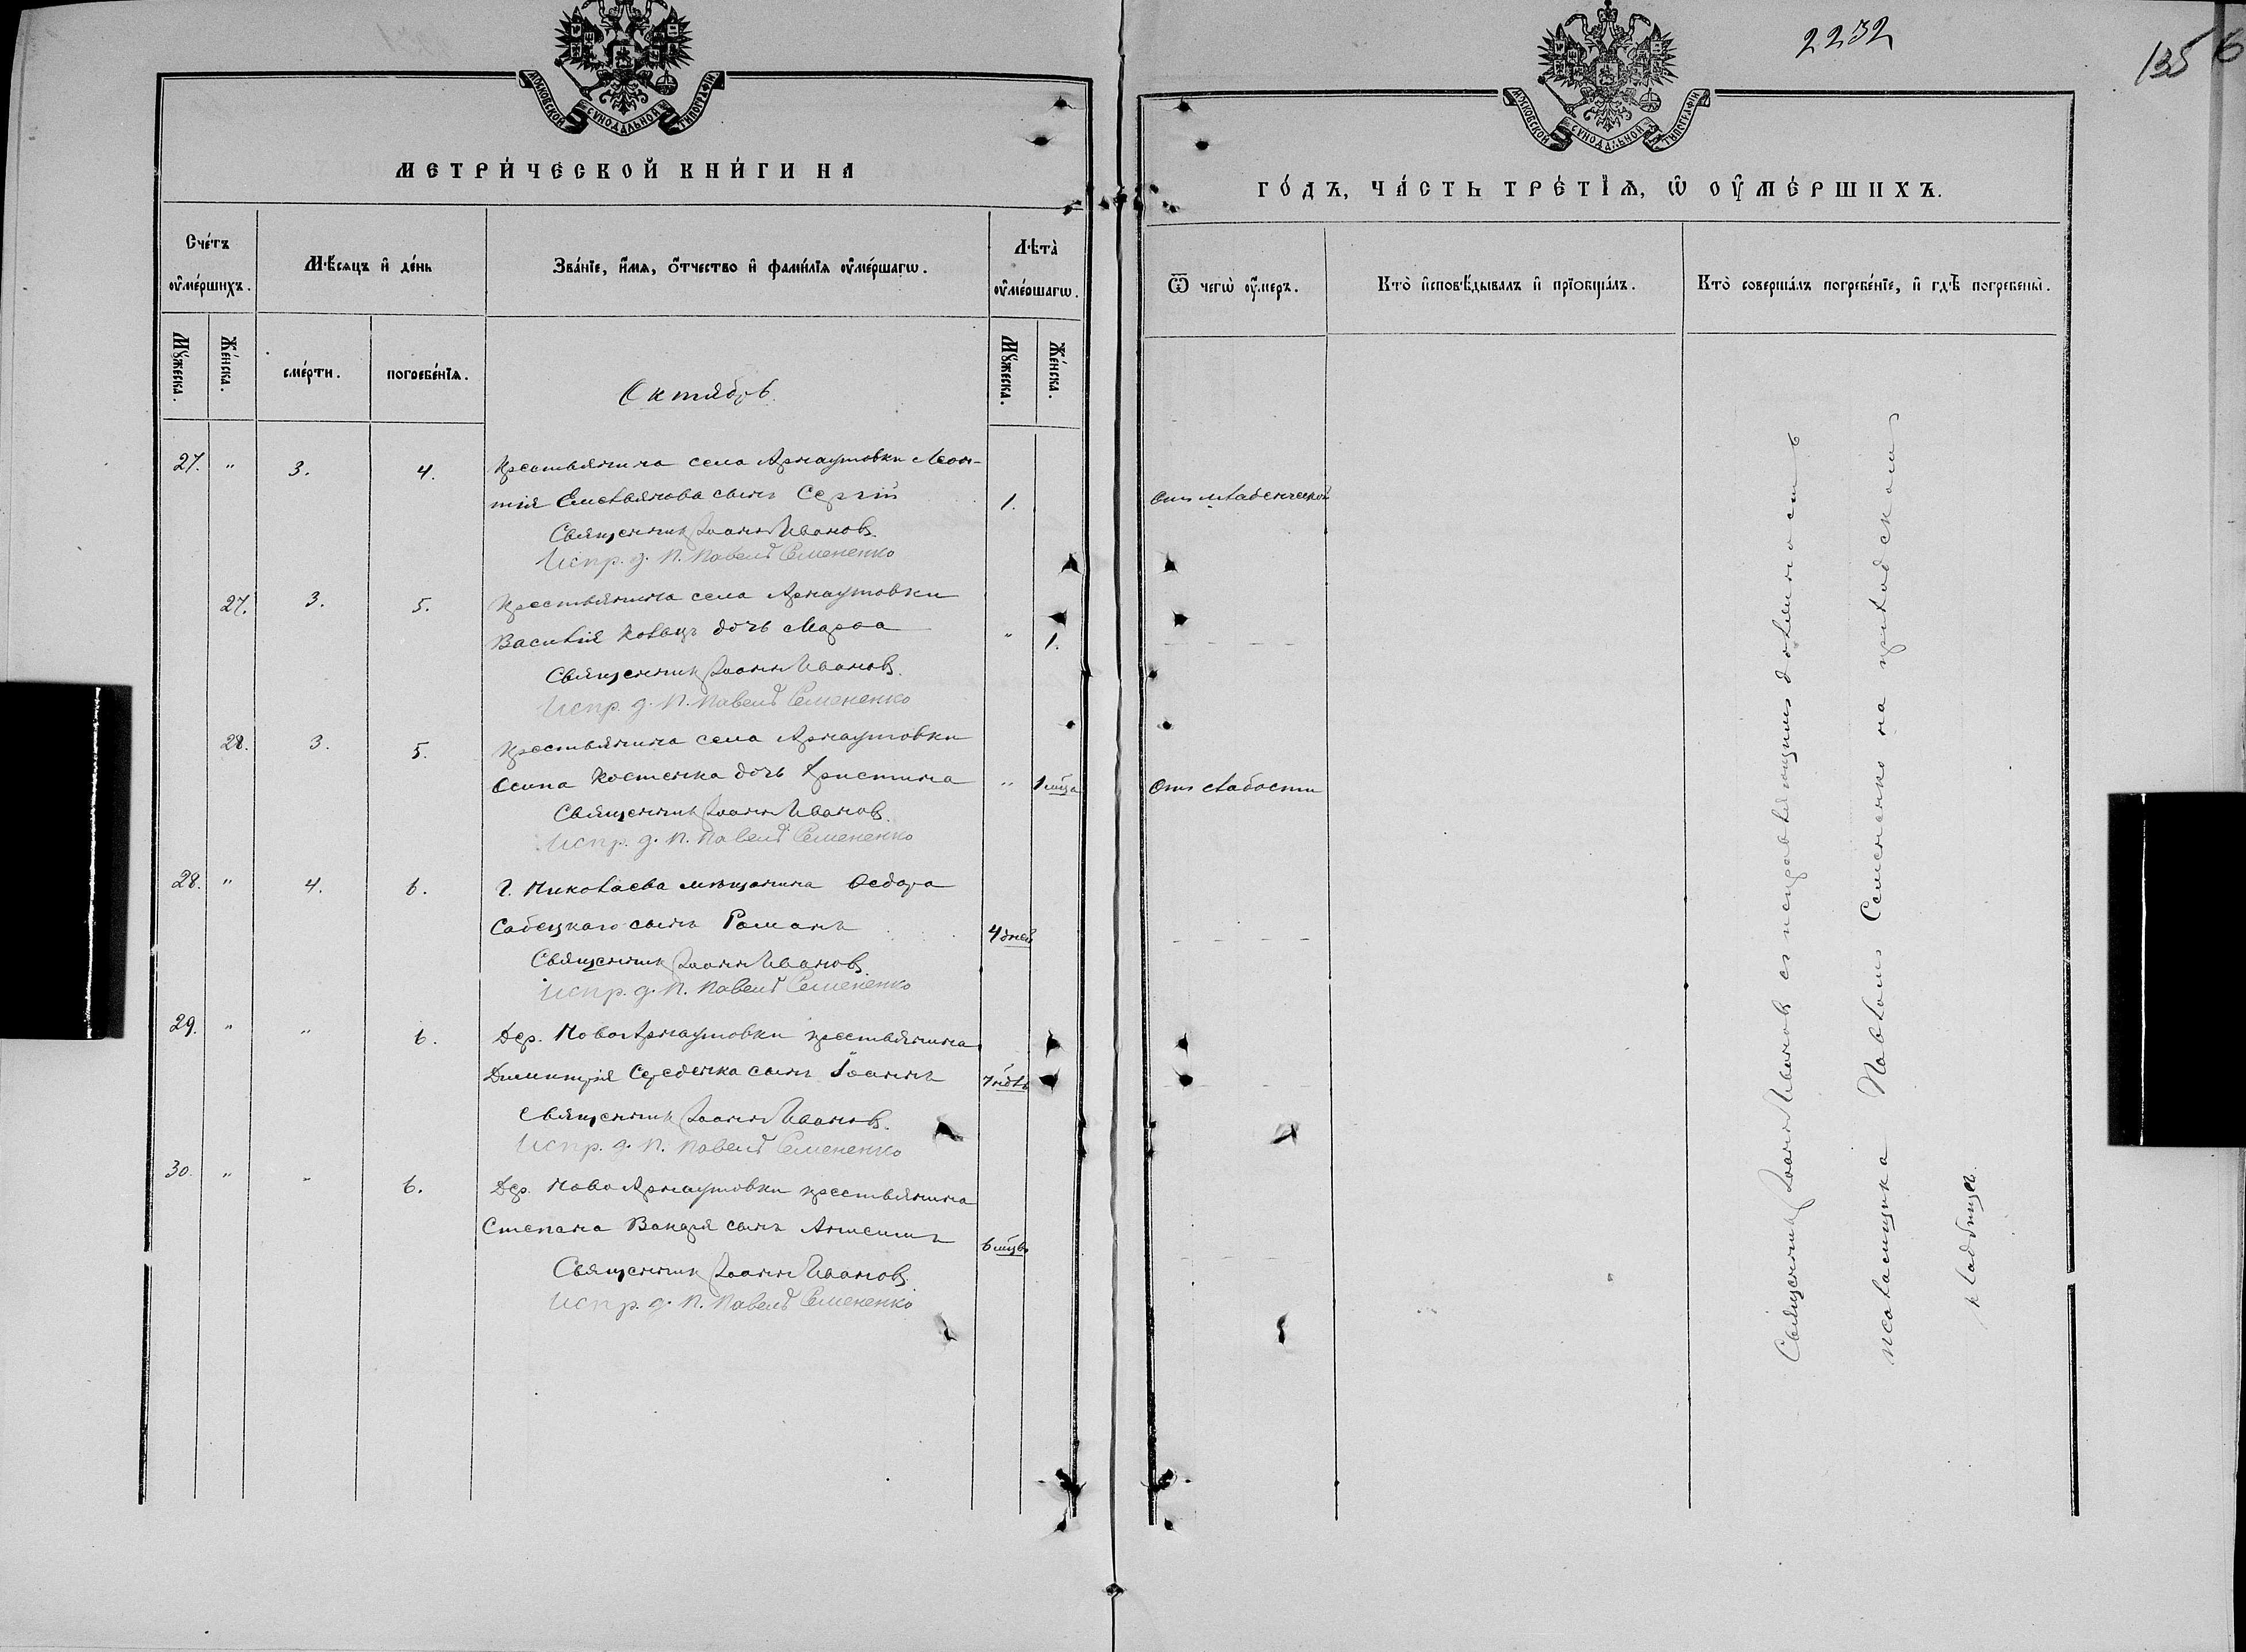 2232
135
6
МОСКОВСКОЙ СѴНОДАЛЬНОЙ ТИПОГРАФІИ
МЕТРИ́ЧЕСКОЙ КНИ́ГИ НА
Сче́тъ ᲂу҆ме́ршихъ.
Мѣ́сяцъ и҆ де́нь
Зва́нїе, и҆́мѧ, ѻ҆́тчество и҆ фами́лїѧ ᲂу҆ме́ршагѡ.
Лѣта̀ ᲂу҆ме́ршагѡ.
Мꙋ́жеска.
Же́нска.
сме́рти.
погребе́нїѧ.
Мꙋ́жеска.
Же́нска.
Октябрь.
27. " 3. 4. Крестьянина села Арнаутовки Леон-
тія Емельянова сынъ Сергій 1.
Священник Іоанн Иванов.
Испр. д. п. Павелъ Семененко
27. 3. 5. Крестьянина села Арнаутовки
Василія дочь Марѳа " 1.
Священник Іоанн Иванов.
Испр. д. п. Павелъ Семененко
28. 3. 5. Крестьянина села Арнаутовки
Осипа Костенка дочь Христина " 1 мѣца
Священник Іоанн Иванов.
Испр. д. п. Павелъ Семененко
28. " 4. 6. Г. Николаева мѣщанина Ѳедора
Сабецкаго сынъ Романъ 4 дней
Священник Іоанн Иванов.
Испр. д. п. Павелъ Семененко
29. " " 6. Дер. НовоАрнаутовки крестьянина
Димитрія Середенка сынъ Іоаннъ 7 нѣдль
Священник Іоанн Иванов.
Испр. д. п. Павелъ Семененко
30. " " 6. Дер. НовоАрнаутовки крестьянина
Степана сынъ 6 мѣцвъ
Священник Іоанн Иванов.
Испр. д. п. Павелъ Семененко
МОСКОВСКОЙ СѴНОДАЛЬНОЙ ТИПОГРАФІИ
ГО́ДЪ, ЧА́СТЬ ТРЕ́ТЇѦ, Ѡ҆ ОУ҆МЕ́РШИХЪ.
Ѿ чегѡ̀ ᲂу҆́меръ.
Кто̀ и҆сповѣ́дывалъ и҆ прїѡбща́лъ.
Кто̀ соверша́лъ погребе́нїе, и҆ гдѣ̀ погребены̀.
отъ младенческой
— — —
отъ слабости
— — —
— —
Священник Іоанн Иванов съ исправляющимъ должность
псаломщика Павломъ Семененко на приходскомъ
кладбищѣ.